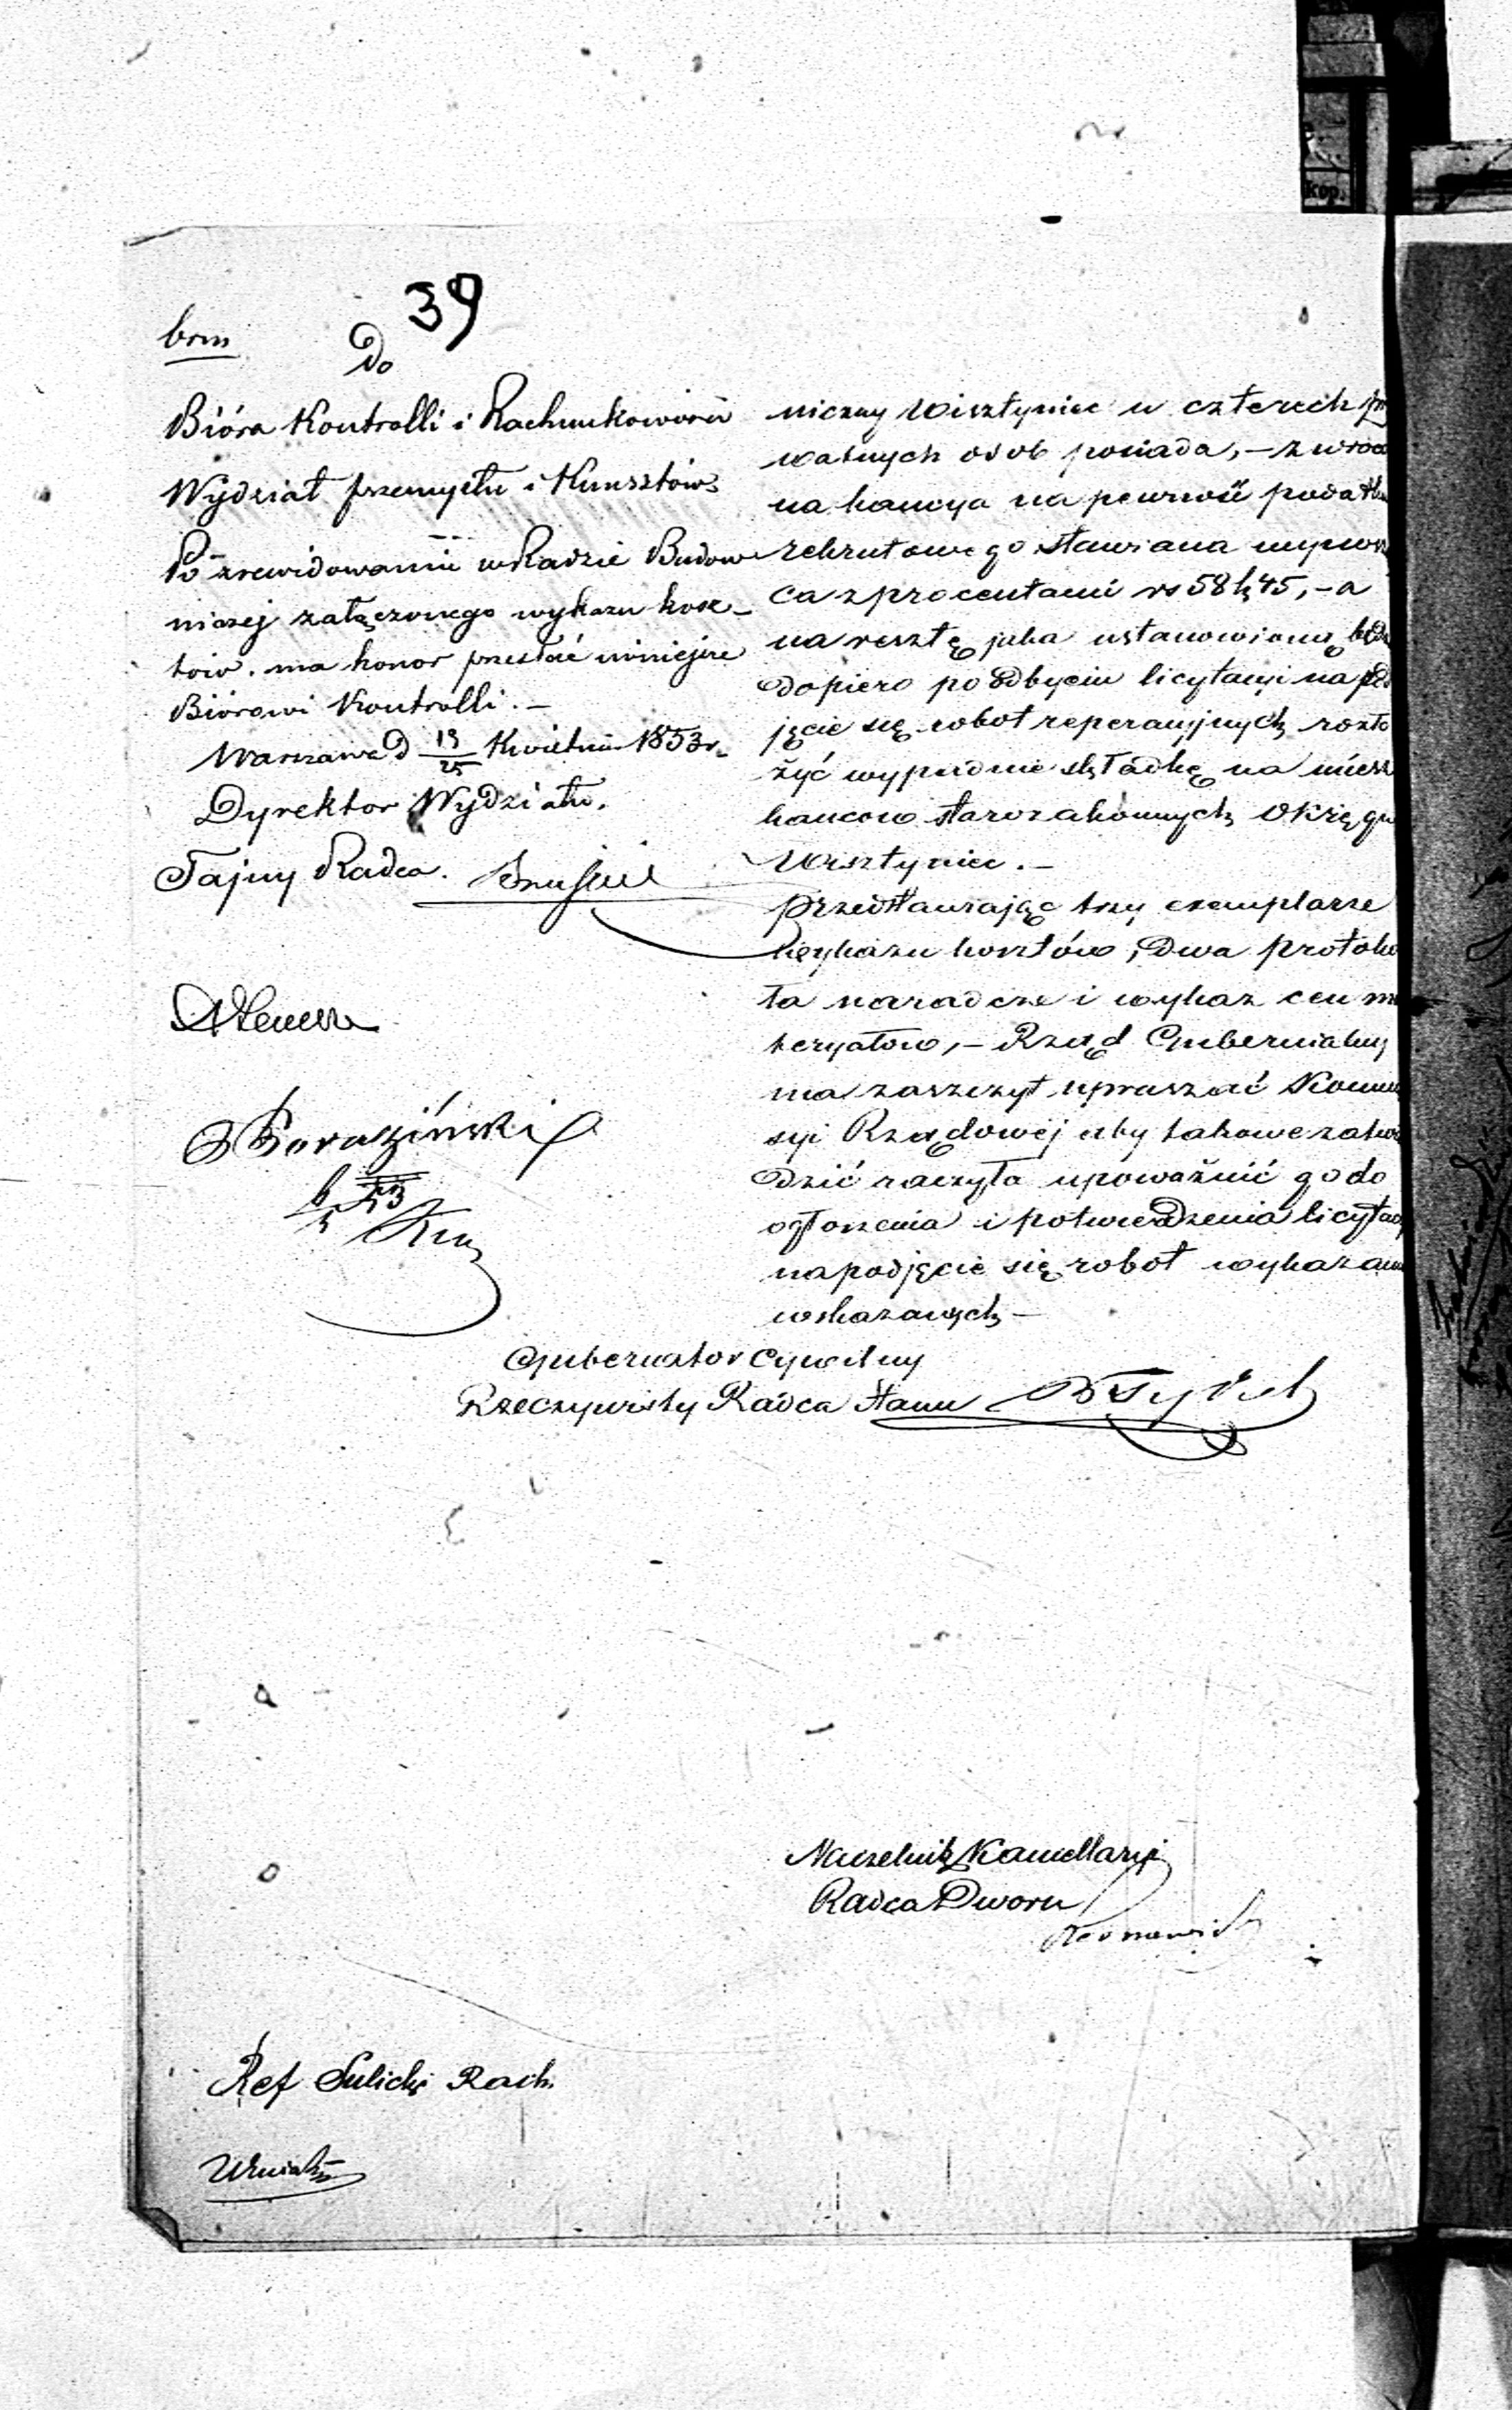 39
brm
Do
Bióra Kontrolli i Rachunkowości
Wydział przemysłu i Kunsztów
Po zrewidowaniu w Radzie Budow
niczej załączonego wykazu kosz-
tów. ma honor przesłać niniejsze
Biórowi Kontrolli. —
Warszawa d 13/25 Kwietnia 1853 r.
Dyrektor Wydziału.
Tajny Radca.
niczny Wisztyniec u czterech
watnych osob posiada, — zwróco
na kaucya na pewność podatku
rekrutowego stawiana
ca z procentami rs 58 k 45, — a
na resztę jaka ustanowioną
dopiero po odbyciu licytacyi na pod
jęcie się robot reperacyjnych rozło
żyć wypadnie składkę na miesz
kancow starozakonnych Okręgu
Wisztyniec. —
Przedstawiając trzy exemplarze
wykazu kosztów, Dwa protoko
ła naradcze i wykaz cen ma
teryałow, — Rząd Gubernialny
ma zaszczyt upraszać Kommi
syi Rządowej aby takowe zatwier
dzić raczyła upoważnić go do
ogłoszenia i potwierdzenia licytacyi
na podjęcie się robot wykazami
wskazanych —
Gubernator Cywilny
Rzeczywisty Radca Stanu
Naczelnik Kancellaryi
Radca Dworu
Ref Sulicki Rach.